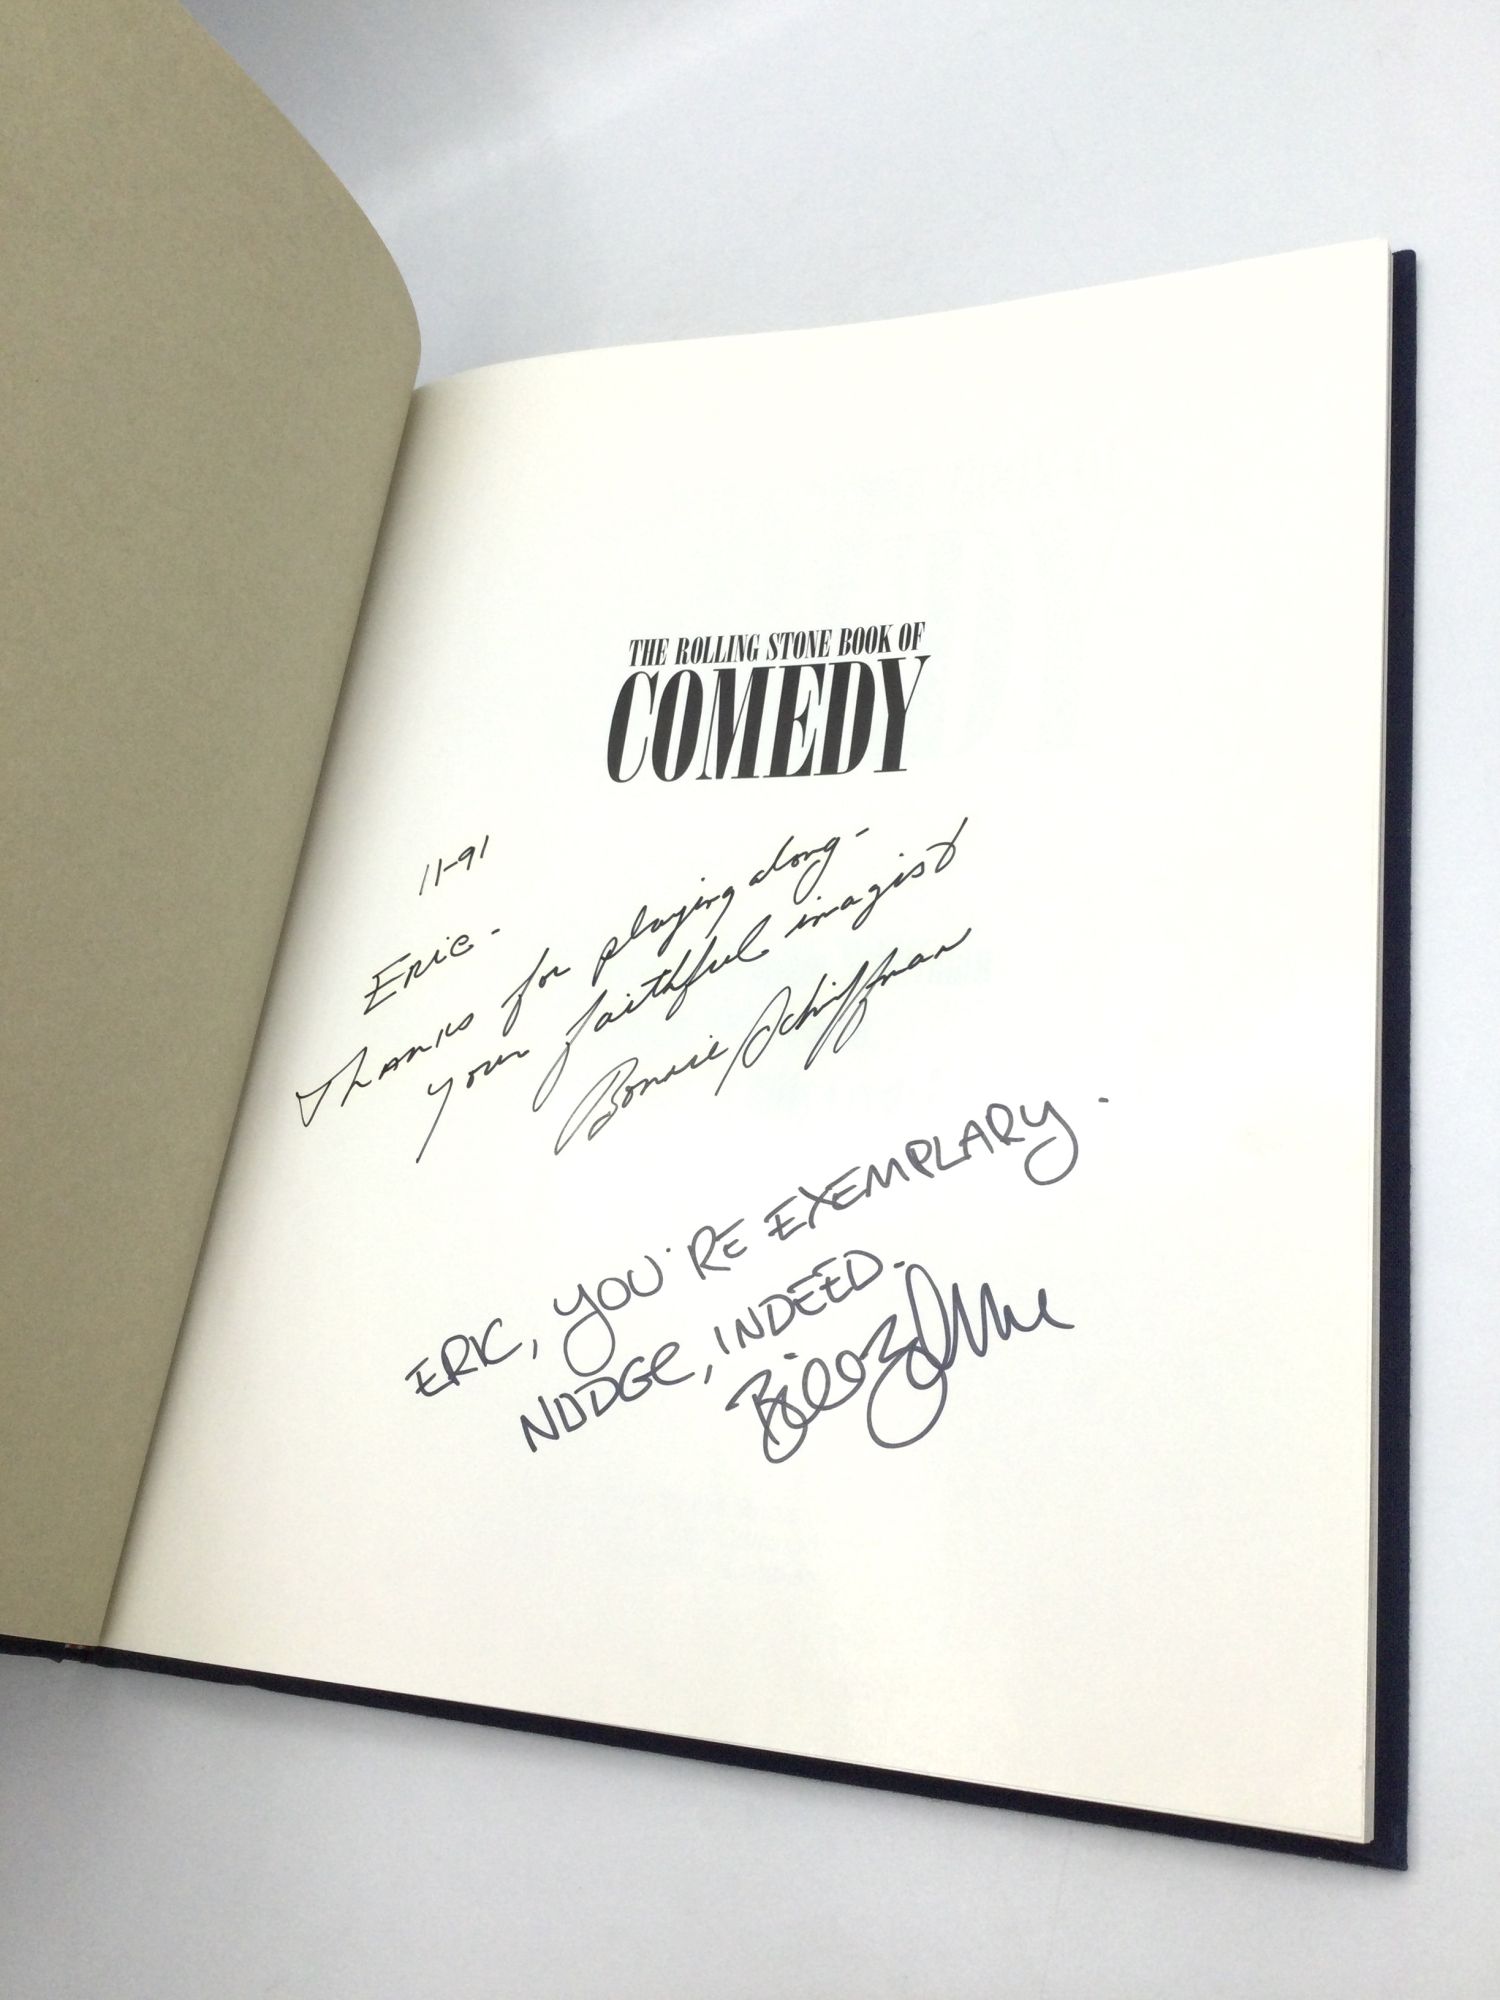 THE ROLLING STONE BOOK OF
COMEDY
11-91
Eric-
Thanks for playing along-
your faithful imagist
Bonnie Schiffman
ERIC, YOU'RE EXEMPLARY.
NUDGE, INDEED.